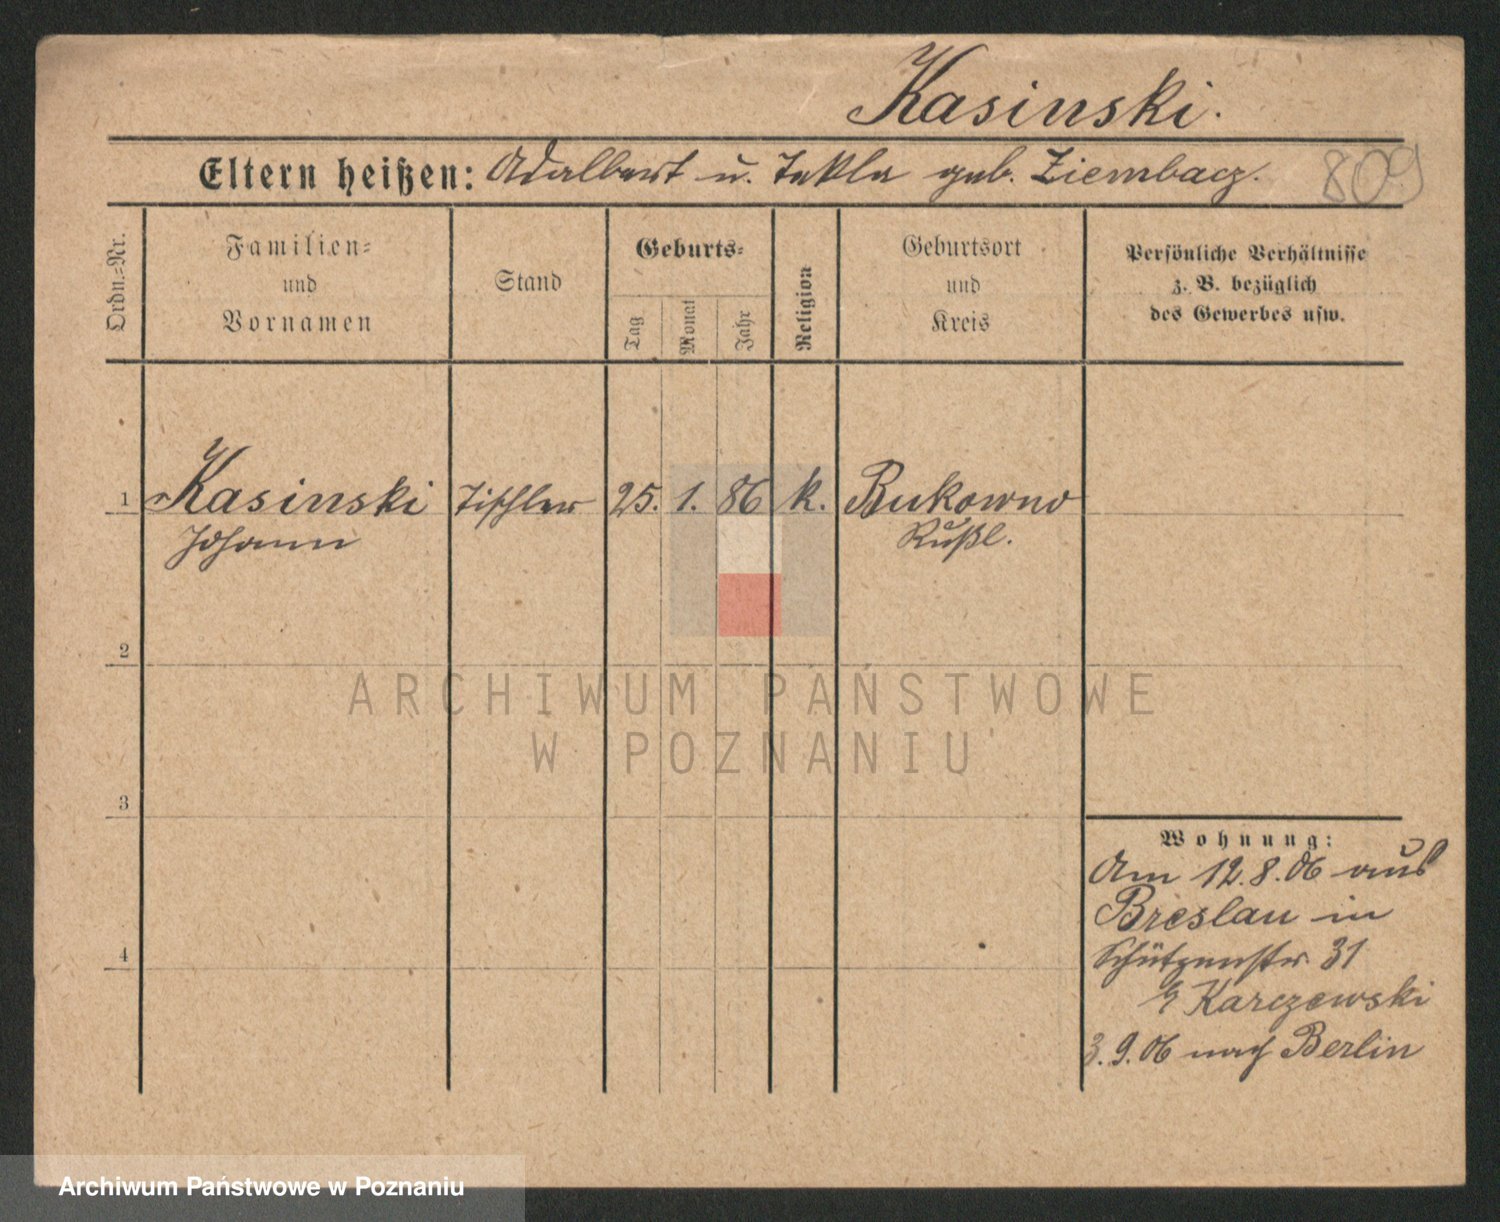 Kasinski.
Eltern heißen: Adalbert u. Tekla geb. Ziembacz.
809
Ordn.=Nr.
Familien=
und
Vornamen
Stand
Geburts=
Tag
Monat
Jahr
Religion
Geburtsort
und
Kreis
Persönliche Verhältnisse
z. B. bezüglich
des Gewerbes usw.
1 Kasinski Tischler 25. 1. 86 k. Bukowno
Johann Rußl.
2
ARCHIWUM PAŃSTWOWE
W POZNANIU
3
Wohnung:
Am 12.8.06 aus
Breslau in
4
Schützenstr. 31
Karczewski
3.9.06 nach Berlin
Archiwum Państwowe w Poznaniu